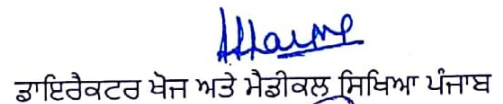 ਡਾਇਰੈਕਟਰ ਖੋਜ ਅਤੇ ਮੈਡੀਕਲ ਸਿਖਿਆ ਪੰਜਾਬ